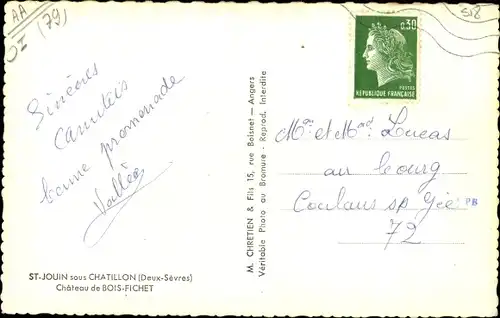 AA
(79)
518
0,30
POSTES
RÉPUBLIQUE FRANÇAISE
Sincères
bonne promenade
Vallée
M. CHRETIEN & Fils 15, rue Boisnet — Angers
Véritable Photo au Bromure - Reprod. Interdite
Mr et Mme Lucas
au bourg
Coulans sp Gée
PB
72
ST-JOUIN sous CHATILLON (Deux-Sèvres)
Château de BOIS-FICHET